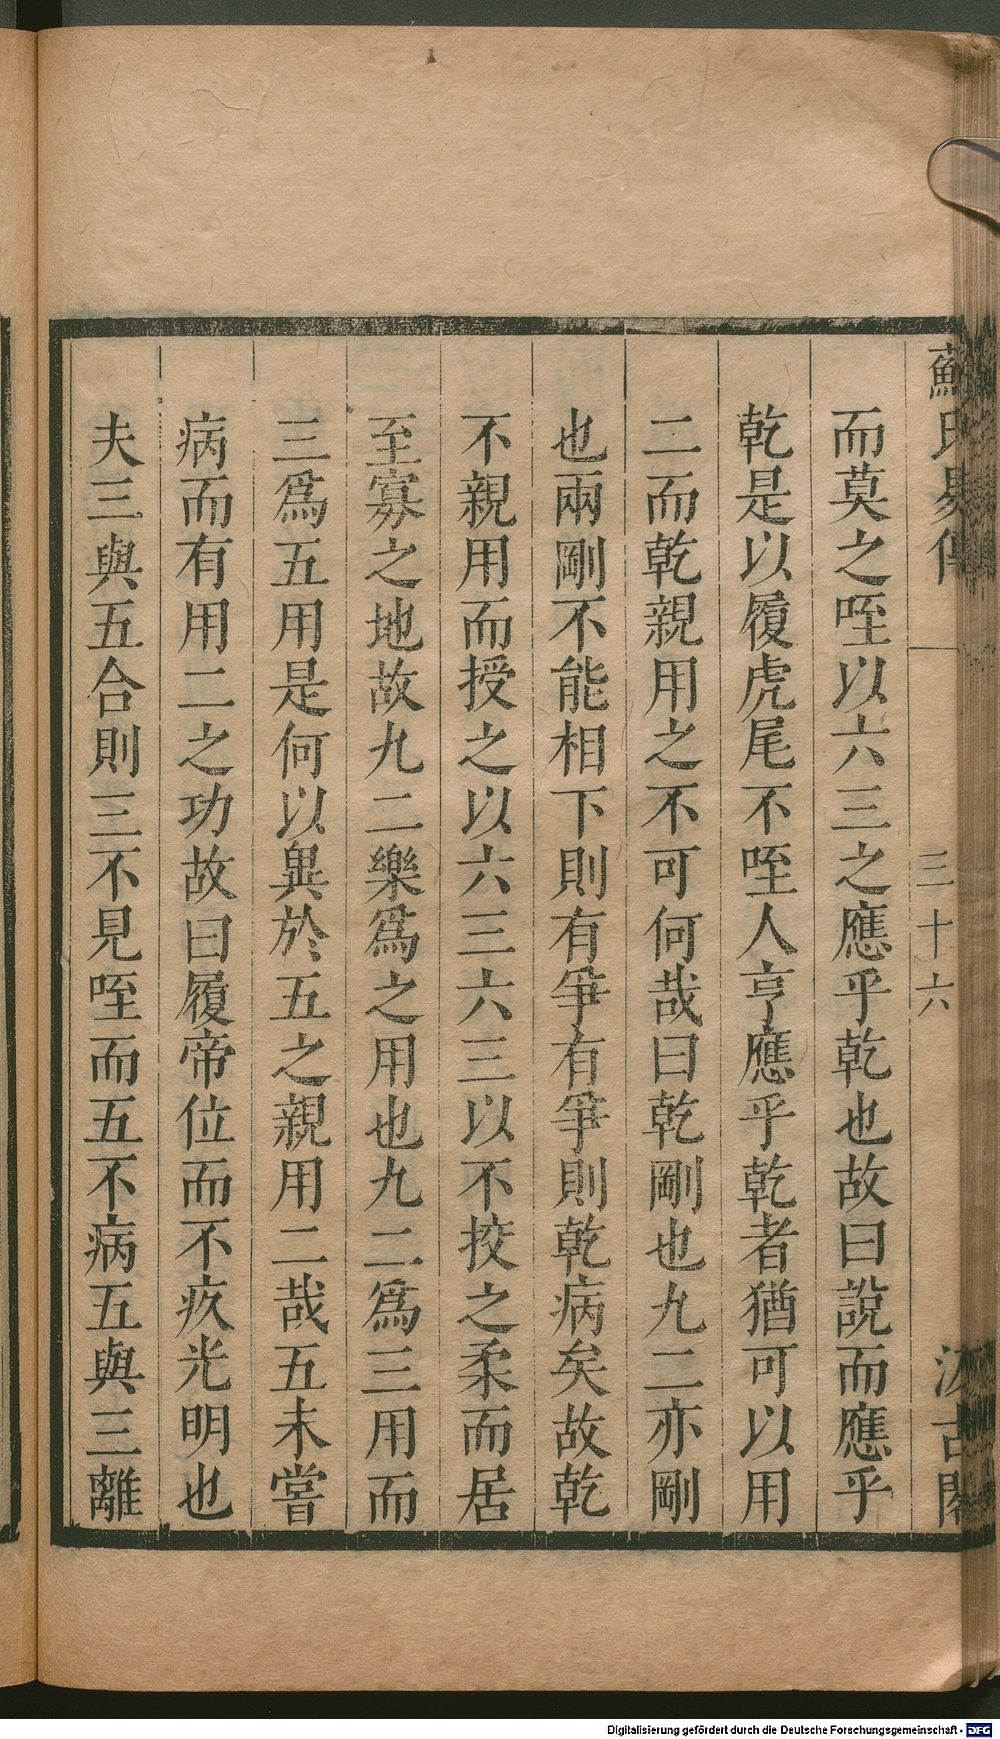 蘇氏易傳 三十六 汲古閣
而莫之咥以六三之應乎乾也故曰說而應乎
乾是以履虎尾不咥人亨應乎乾者猶可以用
二而乾親用之不可何哉曰乾剛也九二亦剛
也兩剛不能相下則有爭有爭則乾病矣故乾
不親用而授之以六三六三以不挍之柔而居
至寡之地故九二樂爲之用也九二爲三用而
三爲五用是何以異於五之親用二哉五未嘗
病而有用二之功故曰履帝位而不疚光明也
夫三與五合則三不見咥而五不病五與三離
Digitalisierung gefördert durch die Deutsche Forschungsgemeinschaft - DFG